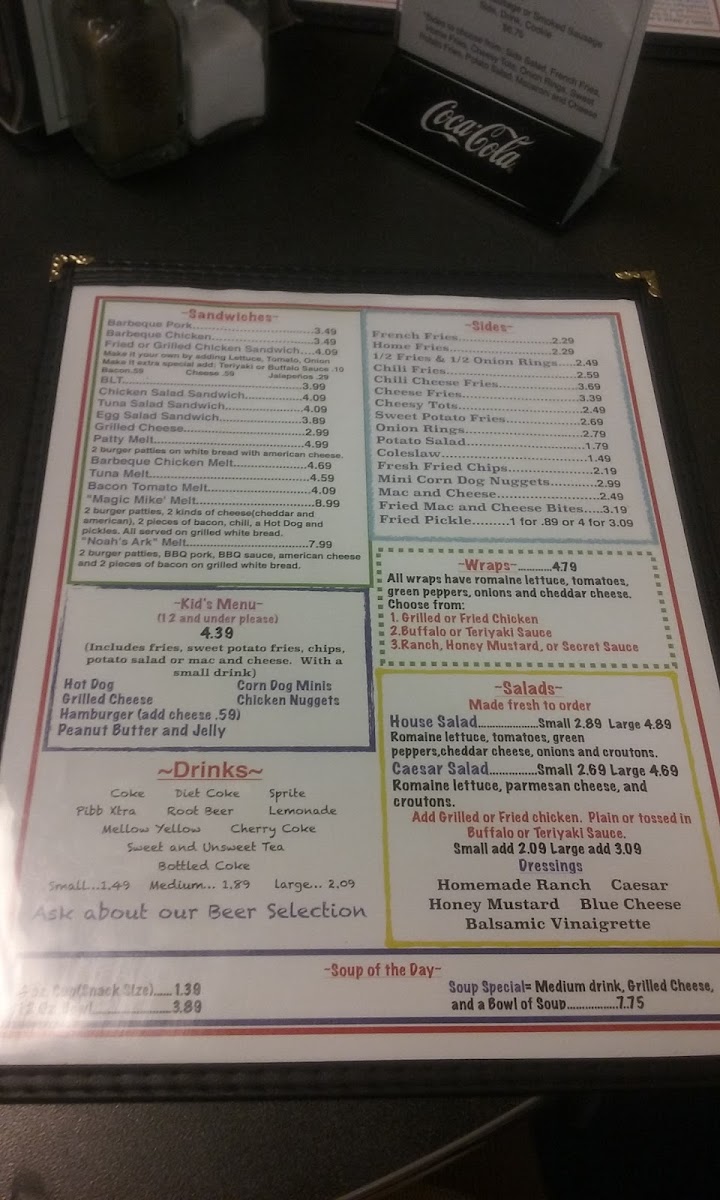 Sausage or Smoked Sausage
Side, Drink, Cookie
*Sides to choose from: Side Salad, French Fries,
Home Fries, Cheesy Tots, Onion Rings, Sweet
Potato Fries, Potato Salad, Macaroni and Cheese
Coca-Cola
~Sandwiches~
Barbeque Pork...3.49
Barbeque Chicken...3.49
Fried or Grilled Chicken Sandwich...4.09
Make it your own by adding Lettuce, Tomato, Onion
Make it extra special add: Teriyaki or Buffalo Sauce .10
Bacon.59 Cheese .59 Jalapeños .29
BLT...3.99
Chicken Salad Sandwich...4.09
Tuna Salad Sandwich...4.09
Egg Salad Sandwich...3.89
Grilled Cheese...2.99
Patty Melt...4.99
2 burger patties on white bread with american cheese.
Barbeque Chicken Melt...4.69
Tuna Melt...4.59
Bacon Tomato Melt...4.09
"Magic Mike' Melt...8.99
2 burger patties, 2 kinds of cheese(cheddar and
american), 2 pieces of bacon, chili, a Hot Dog and
pickles. All served on grilled white bread.
"Noah's Ark" Melt...7.99
2 burger patties, BBQ pork, BBQ sauce, american cheese
and 2 pieces of bacon on grilled white bread.
~Kid's Menu~
(12 and under please)
4.39
(Includes fries, sweet potato fries, chips,
potato salad or mac and cheese. With a
small drink)
Hot Dog Corn Dog Minis
Grilled Cheese Chicken Nuggets
Hamburger (add cheese .59)
Peanut Butter and Jelly
~Drinks~
Coke Diet Coke Sprite
Pibb Xtra Root Beer Lemonade
Mellow Yellow Cherry Coke
Sweet and Unsweet Tea
Bottled Coke
Small...1.49 Medium... 1.89 Large... 2.09
Ask about our Beer Selection
~Sides~
French Fries...2.29
Home Fries...2.29
1/2 Fries & 1/2 Onion Rings....2.49
Chili Fries...2.59
Chili Cheese Fries...3.69
Cheese Fries...3.39
Cheesy Tots...2.49
Sweet Potato Fries...2.69
Onion Rings...2.79
Potato Salad...1.79
Coleslaw...1.49
Fresh Fried Chips...2.19
Mini Corn Dog Nuggets...2.99
Mac and Cheese...2.49
Fried Mac and Cheese Bites....3.19
Fried Pickle.........1 for .89 or 4 for 3.09
~Wraps~...4.79
All wraps have romaine lettuce, tomatoes,
green peppers, onions and cheddar cheese.
Choose from:
1. Grilled or Fried Chicken
2.Buffalo or Teriyaki Sauce
3.Ranch, Honey Mustard, or Secret Sauce
~Salads~
Made fresh to order
House Salad...Small 2.89 Large 4.89
Romaine lettuce, tomatoes, green
peppers,cheddar cheese, onions and croutons.
Caesar Salad...Small 2.69 Large 4.69
Romaine lettuce, parmesan cheese, and
croutons.
Add Grilled or Fried chicken. Plain or tossed in
Buffalo or Teriyaki Sauce.
Small add 2.09 Large add 3.09
Dressings
Homemade Ranch Caesar
Honey Mustard Blue Cheese
Balsamic Vinaigrette
~Soup of the Day~
oz. Cup(Snack Size).....1.39
Oz Bowl...3.89
Soup Special= Medium drink, Grilled Cheese,
and a Bowl of Soup...7.75